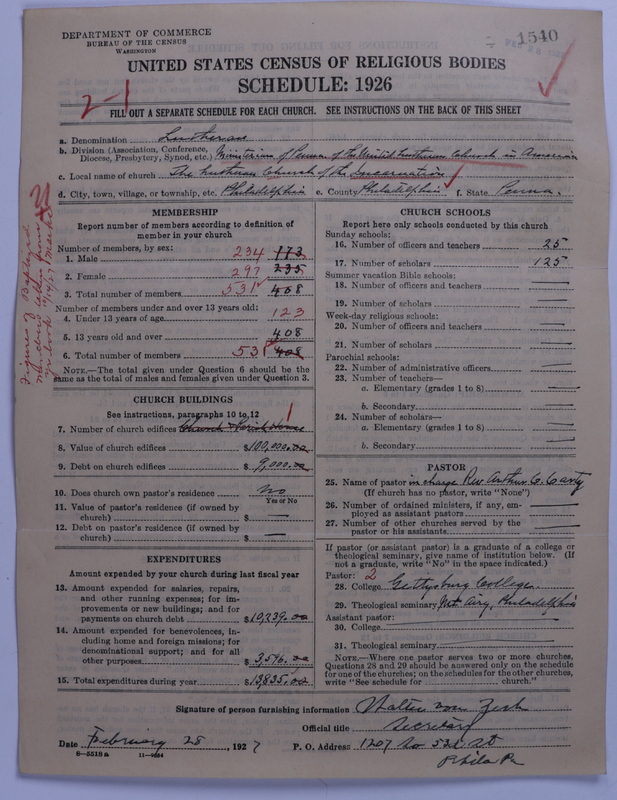 DEPARTMENT OF COMMERCE
BUREAU OF THE CENSUS
WASHINGTON
1540
UNITED STATES CENSUS OF RELIGIOUS BODIES
SCHEDULE: 1926
2-1
FILL OUT A SEPARATE SCHEDULE FOR EACH CHURCH. SEE INSTRUCTIONS ON THE BACK OF THIS SHEET
a. Denomination Lutheran
b. Division (Association, Conference, Diocese, Presbytery, Synod, etc.) Ministerium of Penna of The United Lutheran Church in America
c. Local name of church The Lutheran Church of the Incarnation
d. City, town, village, or township, etc. Philadelphia e. County Philadelphia f. State Penna.
MEMBERSHIP
Report number of members according to definition of
member in your church
Number of members, by sex:
1. Male 234 173
2. Female 297 235
3. Total number of members 531 408
Number of members under and over 13 years old:
4. Under 13 years of age 123
5. 13 years old and over 408
6. Total number of members 531 408
NOTE.—The total given under Question 6 should be
same as the total of males and females given under Question 3.
CHURCH BUILDINGS
See instructions, paragraphs 10 to 12
7. Number of church edifices Church & Parish House 1
8. Value of church edifices $100,000.00
9. Debt on church edifices $9,000.00
10. Does church own pastor's residence No
Yes or No
11. Value of pastor's residence (if owned by
church) $ —
12. Debt on pastor's residence (if owned by
church) $ —
EXPENDITURES
Amount expended by your church during last fiscal year
13. Amount expended for salaries, repairs,
and other running expenses; for im-
provements or new buildings; and for
payments on church debt $10,239.00
14. Amount expended for benevolences, in-
cluding home and foreign missions; for
denominational support; and for all
other purposes $3,596.00
15. Total expenditures during year $13835.00
CHURCH SCHOOLS
Report here only schools conducted by this church
Sunday schools:
16. Number of officers and teachers 25
17. Number of scholars 125
Summer vacation Bible schools:
18. Number of officers and teachers —
19. Number of scholars —
Week-day religious schools:
20. Number of officers and teachers —
21. Number of scholars —
Parochial schools:
22. Number of administrative officers —
23. Number of teachers—
a. Elementary (grades 1 to 8) —
b. Secondary —
24. Number of scholars—
a. Elementary (grades 1 to 8) —
b. Secondary —
PASTOR
25. Name of pastor in charge Rev Arthur C. Carty
(If church has no pastor, write "None")
26. Number of ordained ministers, if any, em-
ployed as assistant pastors —
27. Number of other churches served by the
pastor or his assistants —
If pastor (or assistant pastor) is a graduate of a college or
theological seminary, give name of institution below. (If
not a graduate, write "No" in the space indicated.)
Pastor: 2
28. College Gettysburg College
29. Theological seminary Mt Airy, Philadelphia
Assistant pastor:
30. College
31. Theological seminary
NOTE.—Where one pastor serves two or more churches,
Questions 28 and 29 should be answered only on the schedule
for one of the churches; on the schedules for the other churches,
write "See schedule for church."
Signature of person furnishing information Walter
Official title Secretary
Date February 28, 1927 P. O. Address 1207 So 53d St
Phila Pa
8—5518a 11—9064